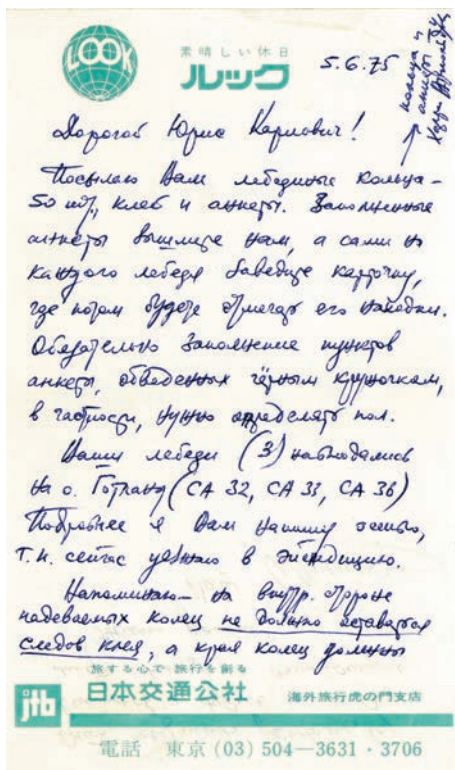 LOOK
素晴しい休日
ルック
5.6.75
кольца и
анкеты
Дорогой Юрис Карлович!
Посылаю Вам лебединые кольца –
50 шт., клей и анкеты. Заполненные
анкеты вышлите нам, а сами на
каждого лебедя заведите карточку,
где потом будете отмечать его находки.
Обязательно заполнение пунктов
анкеты, обведенных чёрным кружочкам,
в частности, нужно определять пол.
Ваши лебеди (3) наблюдались
на о. Готланд (СА 32, СА 33, СА 36)
Подробнее я Вам напишу осенью,
т.к. сейчас уезжаю в экспедицию.
Напоминаю – на внутр. стороне
надеваемых колец не должно оставаться
следов клея, а края колец должны
旅する心で 旅行を創る
jtb
日本交通公社 海外旅行虎の門支店
電話 東京 (03) 504―3631・3706